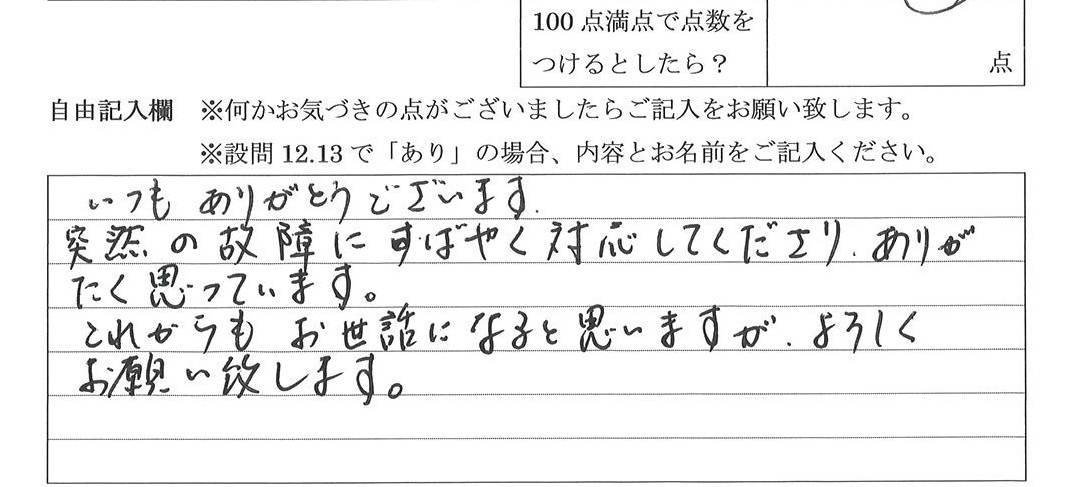 100点満点で点数を
つけるとしたら？
点
自由記入欄 ※何かお気づきの点がございましたらご記入をお願い致します。
※設問12.13で「あり」の場合、内容とお名前をご記入ください。
いつもありがとうございます.
突然の故障にすばやく対応してくださり、ありが
たく思っています。
これからもお世話になると思いますが、よろしく
お願い致します。